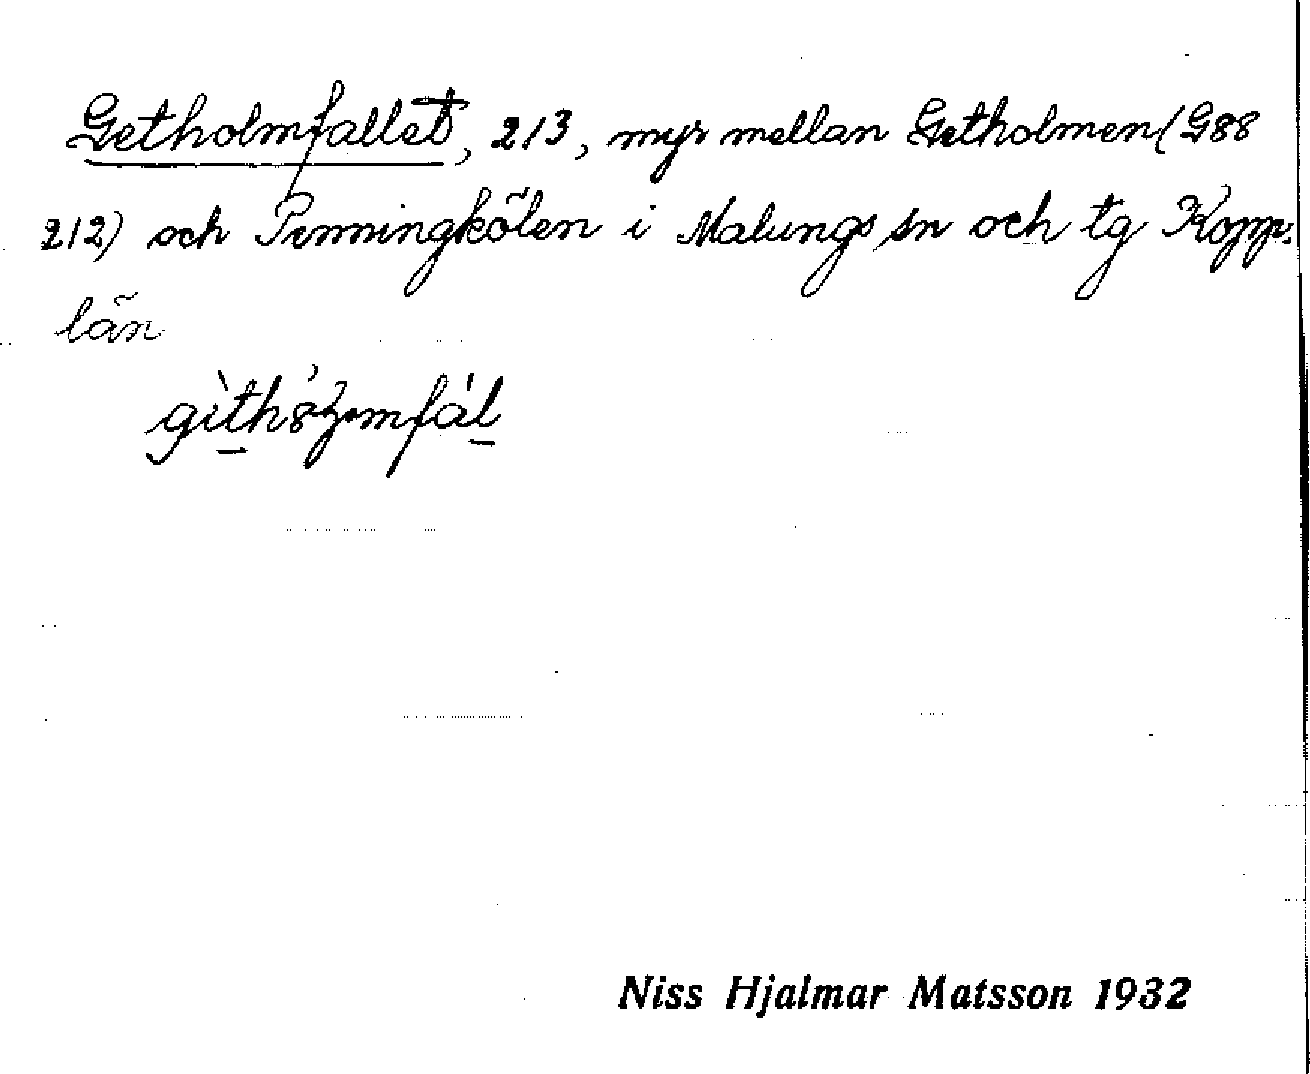 Getholmfallet, 213, myr mellan Getholmen (G88
212) och Penningkölen i Malungs sn och tg Kopp.
län
Niss Hjalmar Matsson 1932